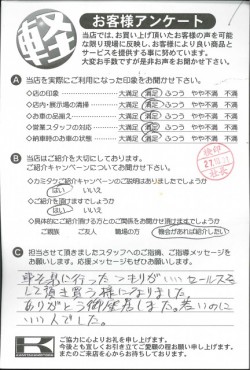 軽
お客様アンケート
当店では、お買い上げ頂いたお客様の声を可能
な限り現場に反映し、お客様により良い商品と
サービスを提供する車に努めています。
大変お手数ですが是非お声をお聞かせ下さい。
A 当店を実際にご利用になった印象をお聞かせ下さい。
◇店の印象 大満足 満足 ふつう やや不満 不満
◇店内・展示場の清掃 大満足 満足 ふつう やや不満 不満
◇お車の品揃え 大満足 満足 ふつう やや不満 不満
◇営業スタッフの対応 大満足 満足 ふつう やや不満 不満
◇納車時のお車の状態 大満足 満足 ふつう やや不満 不満
B 当店はご紹介を大切にしております。
ご紹介キャンペーンについてお聞かせ下さい。
◇カミタケご紹介キャンペーンのご説明はありましたでしょうか
はい いいえ
◇ご紹介を頂けますでしょうか
はい いいえ
◇具体的にご紹介頂ける方との関係をお聞かせ頂けますでしょうか
ご親族 ご友人 職場の方 機会があれば紹介したい
C 担当させて頂きましたスタッフへのご指摘、ご指導メッセージを
お願いします。応援メッセージもぜひお願いします。
車を見に行ったつもりがいいセールスを
して頂き買う様になりました
ありがとう御座居ました。若いのに
いい人でした。
ご協力に心よりお礼を申し上げます。
今後とも宜しくお引き立てご愛顧の程お願い申し上げます。
またのご来店を心からお待ちしております。